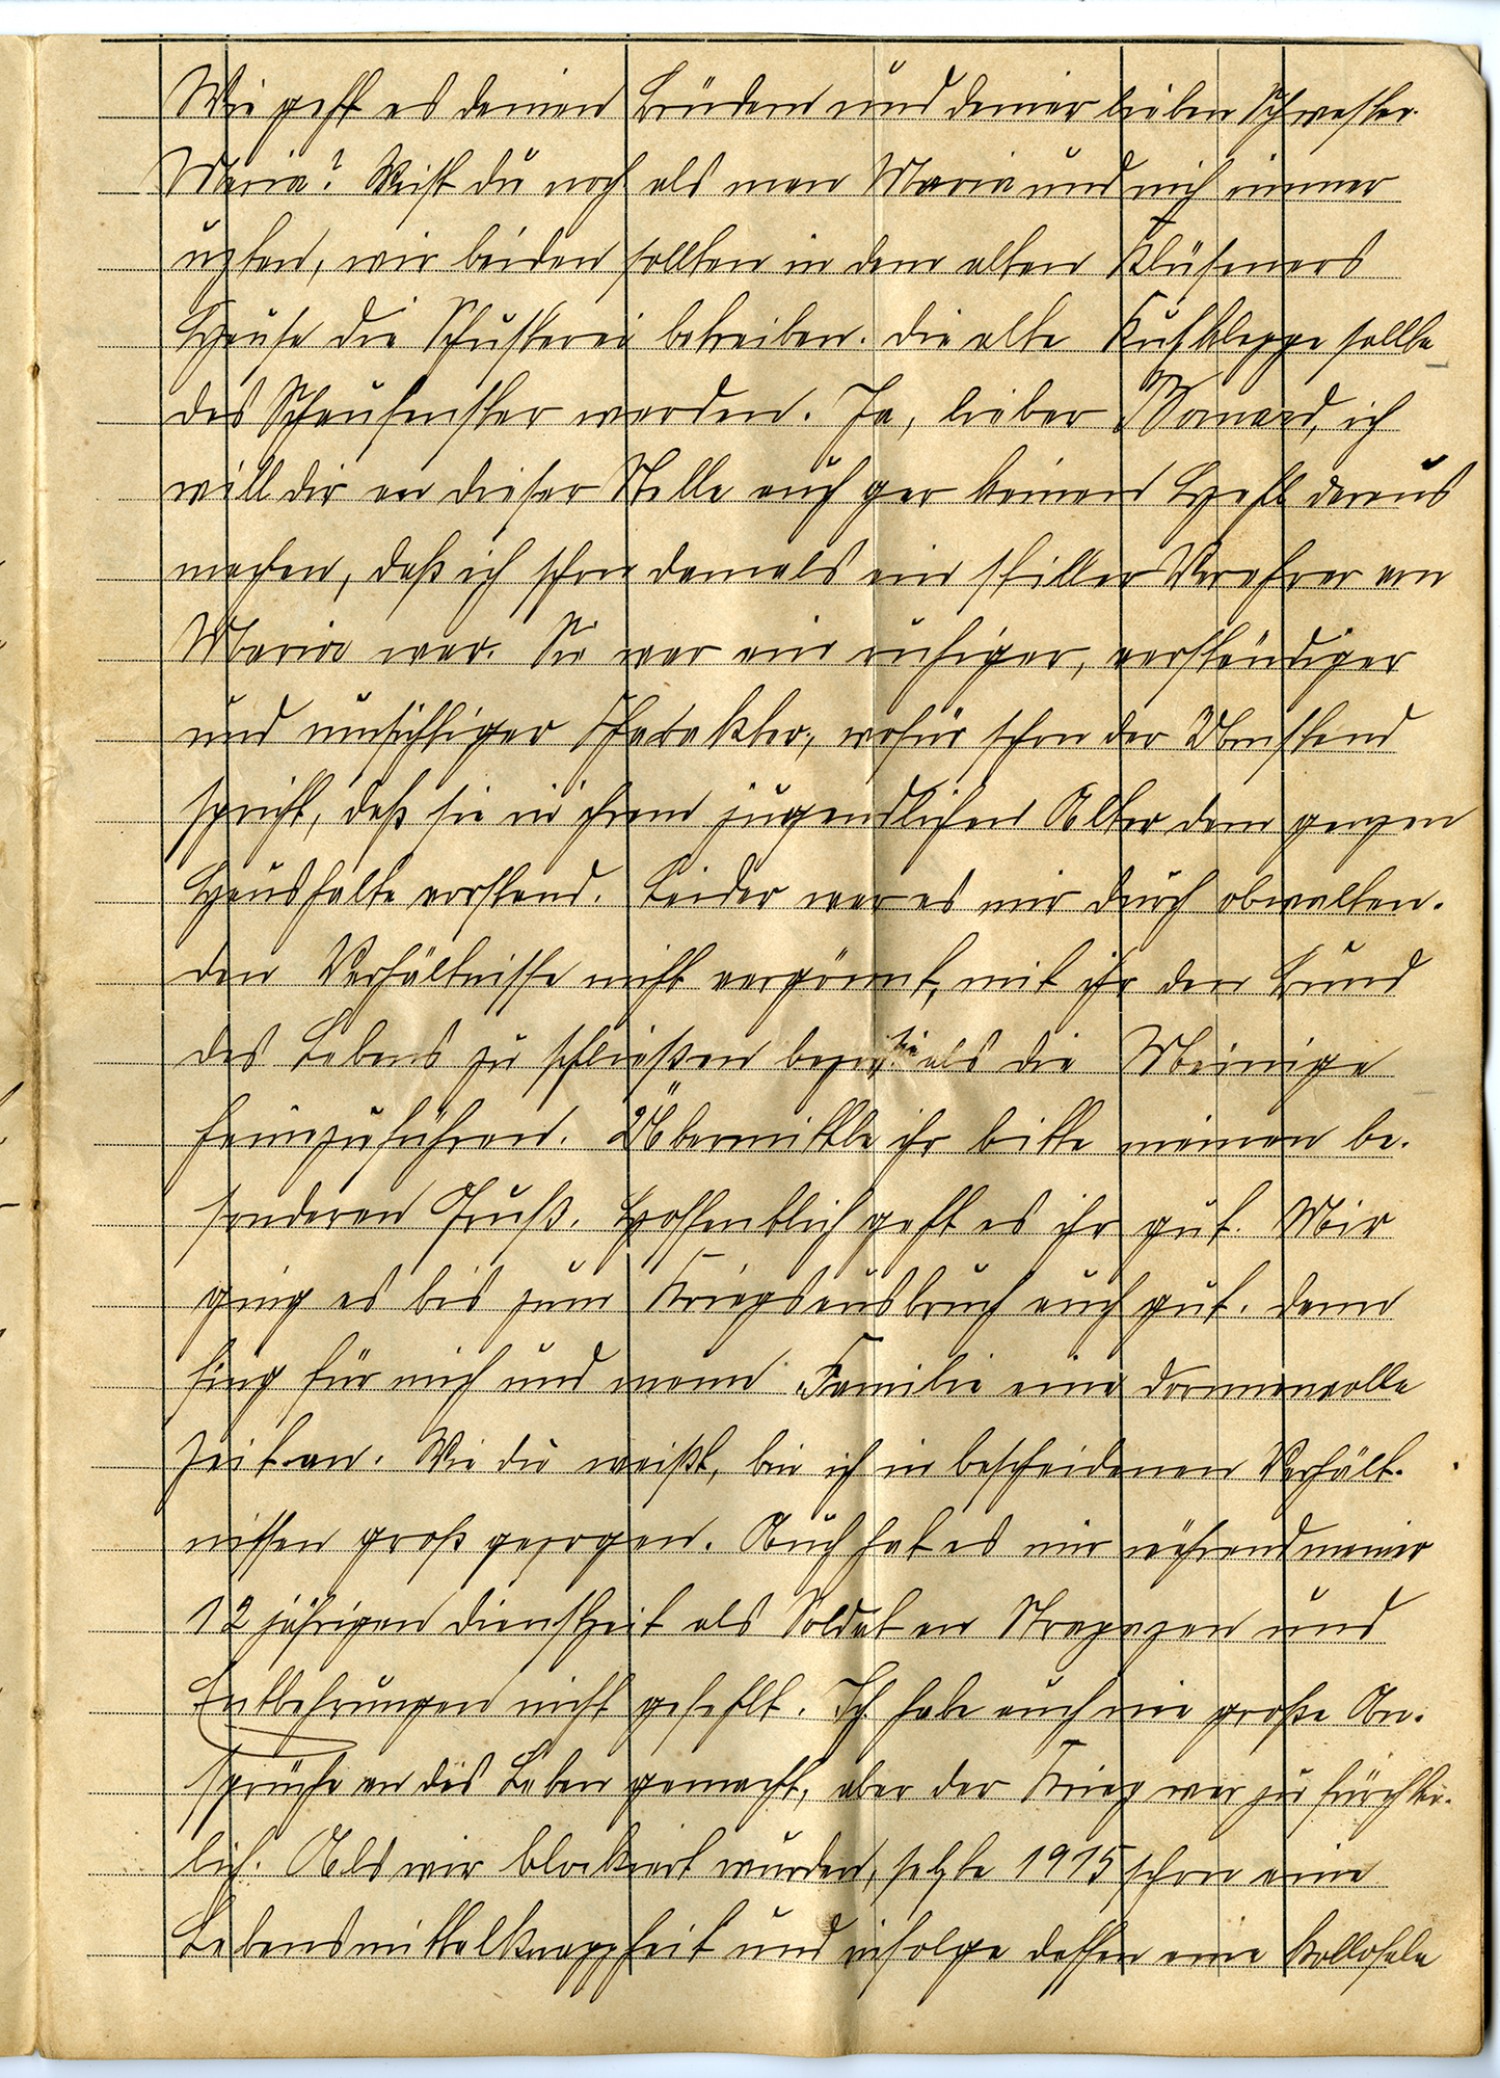 Wie geht es deinen Brüdern und deiner lieben Schwester
Maria? Weist du noch als man Maria und mich immer
uzten, wir beiden sollten in dem alten Klüseners
Hause die Schusterei betreiben. Die alte sollte
das Schaufenster werden. Ja, lieber Bernard, ich
will dir an dieser Stelle auch gar keinen Hehl daraus
machen, daß ich schon damals ein stiller Verehrer von
Maria war. Sie war ein ruhiger, verständiger
und umsichtiger Charakter, wofür schon der Umstand
spricht, daß sie in ihrem jugendlichen Alter dem ganzen
Haushalte vorstand. Leider war es mir durch obwalten-
den Verhältnisse nicht vergönnt, mit ihr den Bund
des Lebens zu schließen bezw. sie als die Meinige
heimzuführen. Übermittle ihr bitte meinen be-
sonderen Gruß. Hoffentlich geht es ihr gut. Mir
ging es bis zum Kriegsausbruch auch gut. Dann
fing für mich und meine Familie eine dornenvolle
Zeit an. Wie du weißt, bin ich in bescheidenen Verhält-
nissen groß gezogen. Auch hat es mir während meiner
12 jährigen Dienstzeit als Soldat an Strapazen und
Entbehrungen nicht gefehlt. Ich habe auch nie große An-
sprüche an das Leben gemacht, aber der Krieg war zu fürchter-
lich. Als wir blockiert wurden, setzte 1915 schon eine
Lebensmittelknappheit und infolge dessen eine kollosale